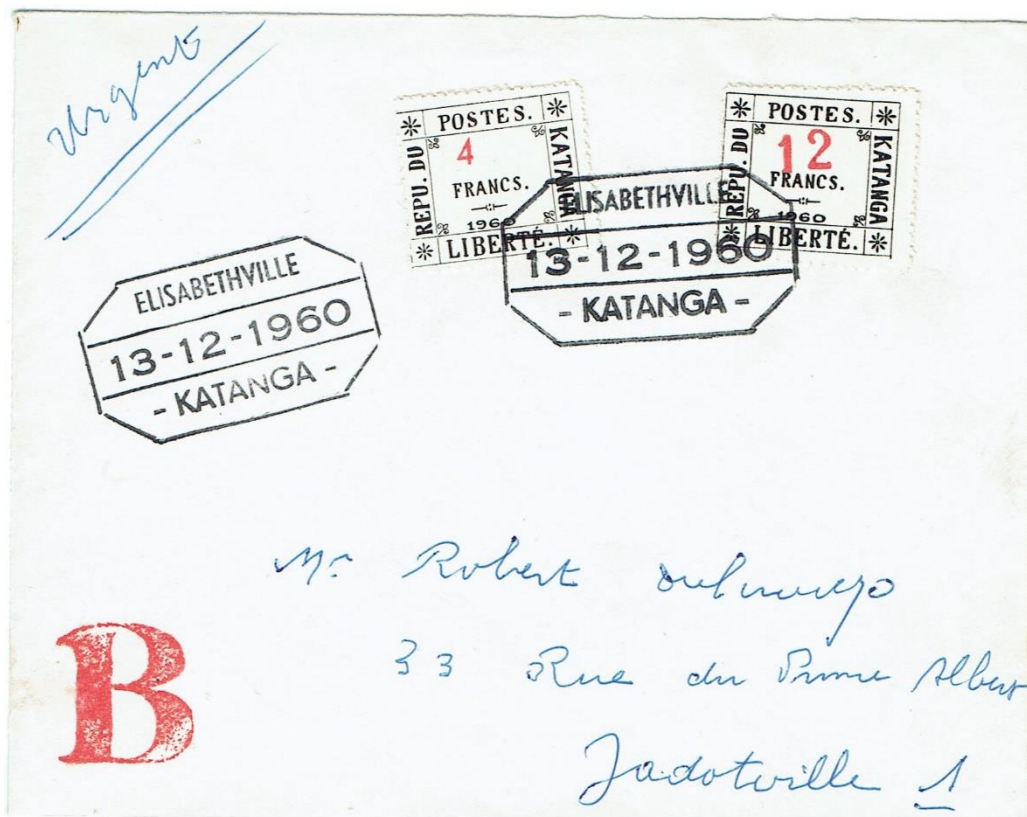 Urgent
POSTES.
REPU. DU
4
FRANCS.
1960
KATANGA
LIBERTÉ.
POSTES.
REPU. DU
12
FRANCS.
1960
KATANGA
LIBERTÉ.
ELISABETHVILLE
13-12-1960
- KATANGA -
ELISABETHVILLE
13-12-1960
- KATANGA -
Mr Robert
33 Rue du Prince Albert
B
Jadotville 1